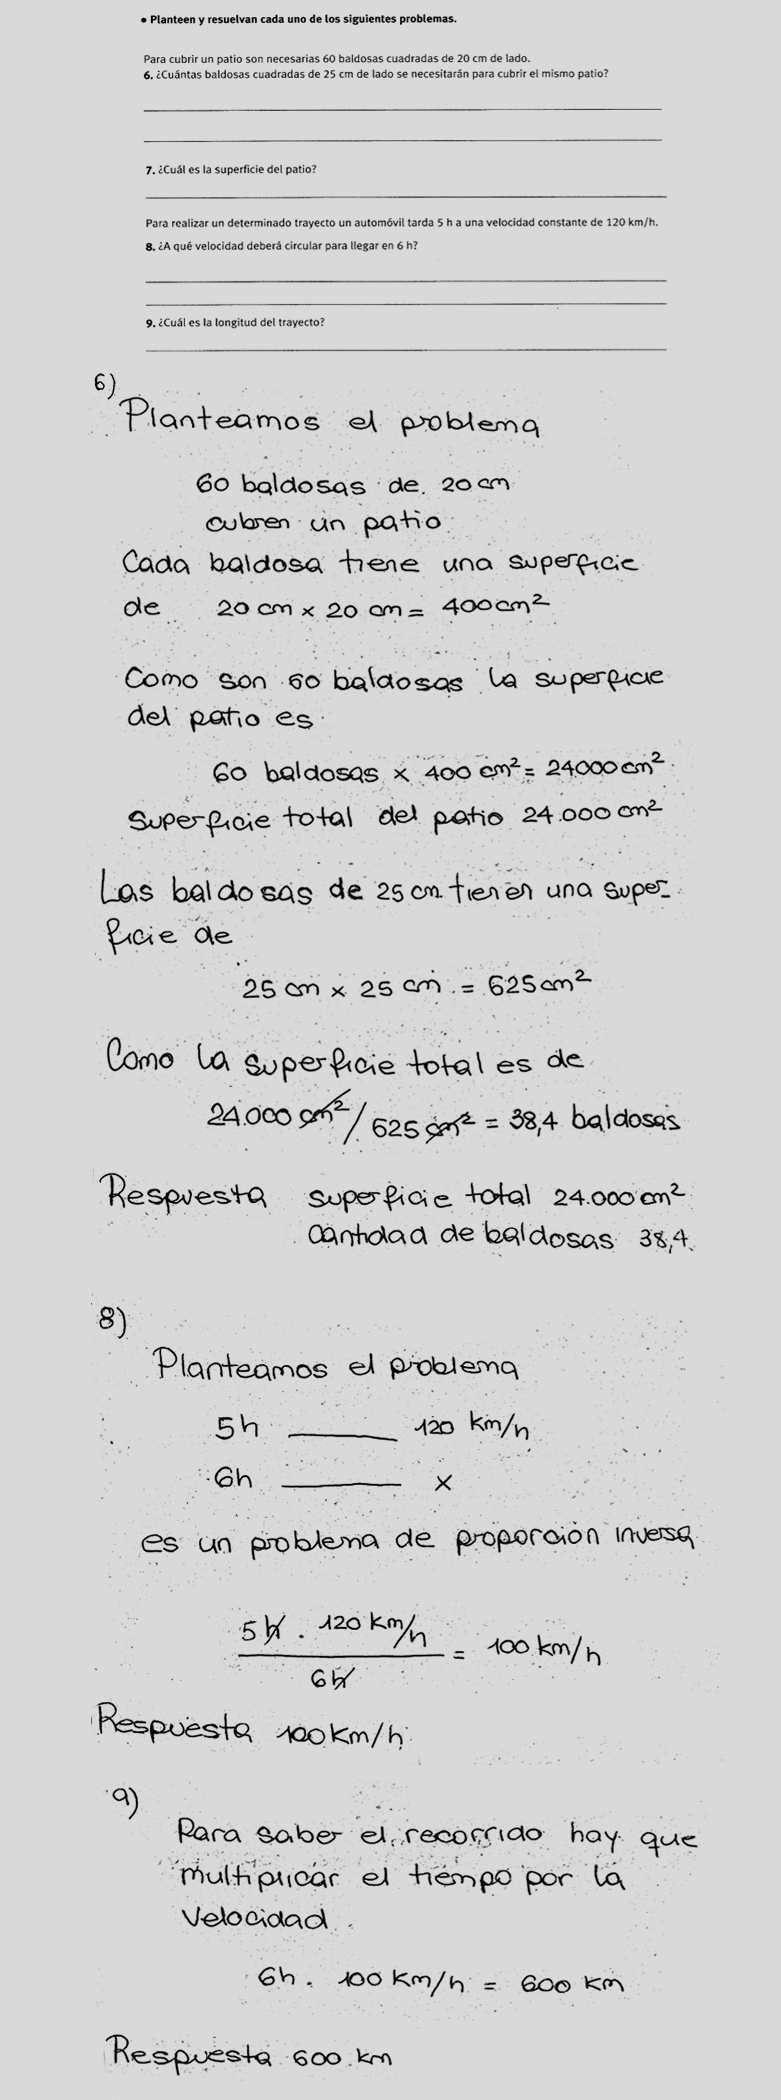 • Planteen y resuelvan cada uno de los siguientes problemas.
Para cubrir un patio son necesarias 60 baldosas cuadradas de 20 cm de lado.
6. ¿Cuántas baldosas cuadradas de 25 cm de lado se necesitarán para cubrir el mismo patio?
7. ¿Cuál es la superficie del patio?
Para realizar un determinado trayecto un automóvil tarda 5 h a una velocidad constante de 120 km/h.
8. ¿A qué velocidad deberá circular para llegar en 6 h?
9. ¿Cuál es la longitud del trayecto?
6)
Planteamos el problema
60 baldosas de 20 cm
cubren un patio
Cada baldosa tiene una superficie
de 20 cm x 20 cm = 400 cm²
Como son 60 baldosas la superficie
del patio es
60 baldosas x 400 cm² = 24000 cm²
Superficie total del patio 24.000 cm²
Las baldosas de 25 cm tienen una super-
ficie de
25 cm x 25 cm = 625 cm²
Como la superficie total es de
24.000 cm² / 625 cm² = 38,4 baldosas
Respuesta superficie total 24.000 cm²
cantidad de baldosas 38,4.
8)
Planteamos el problema
5h ______ 120 km/h
6h ______ x
es un problema de proporción inversa
5h . 120 km/h
= 100 km/h
6h
Respuesta 100 km/h
9)
Para saber el recorrido hay que
multiplicar el tiempo por la
velocidad.
6h . 100 km/h = 600 km
Respuesta 600 km